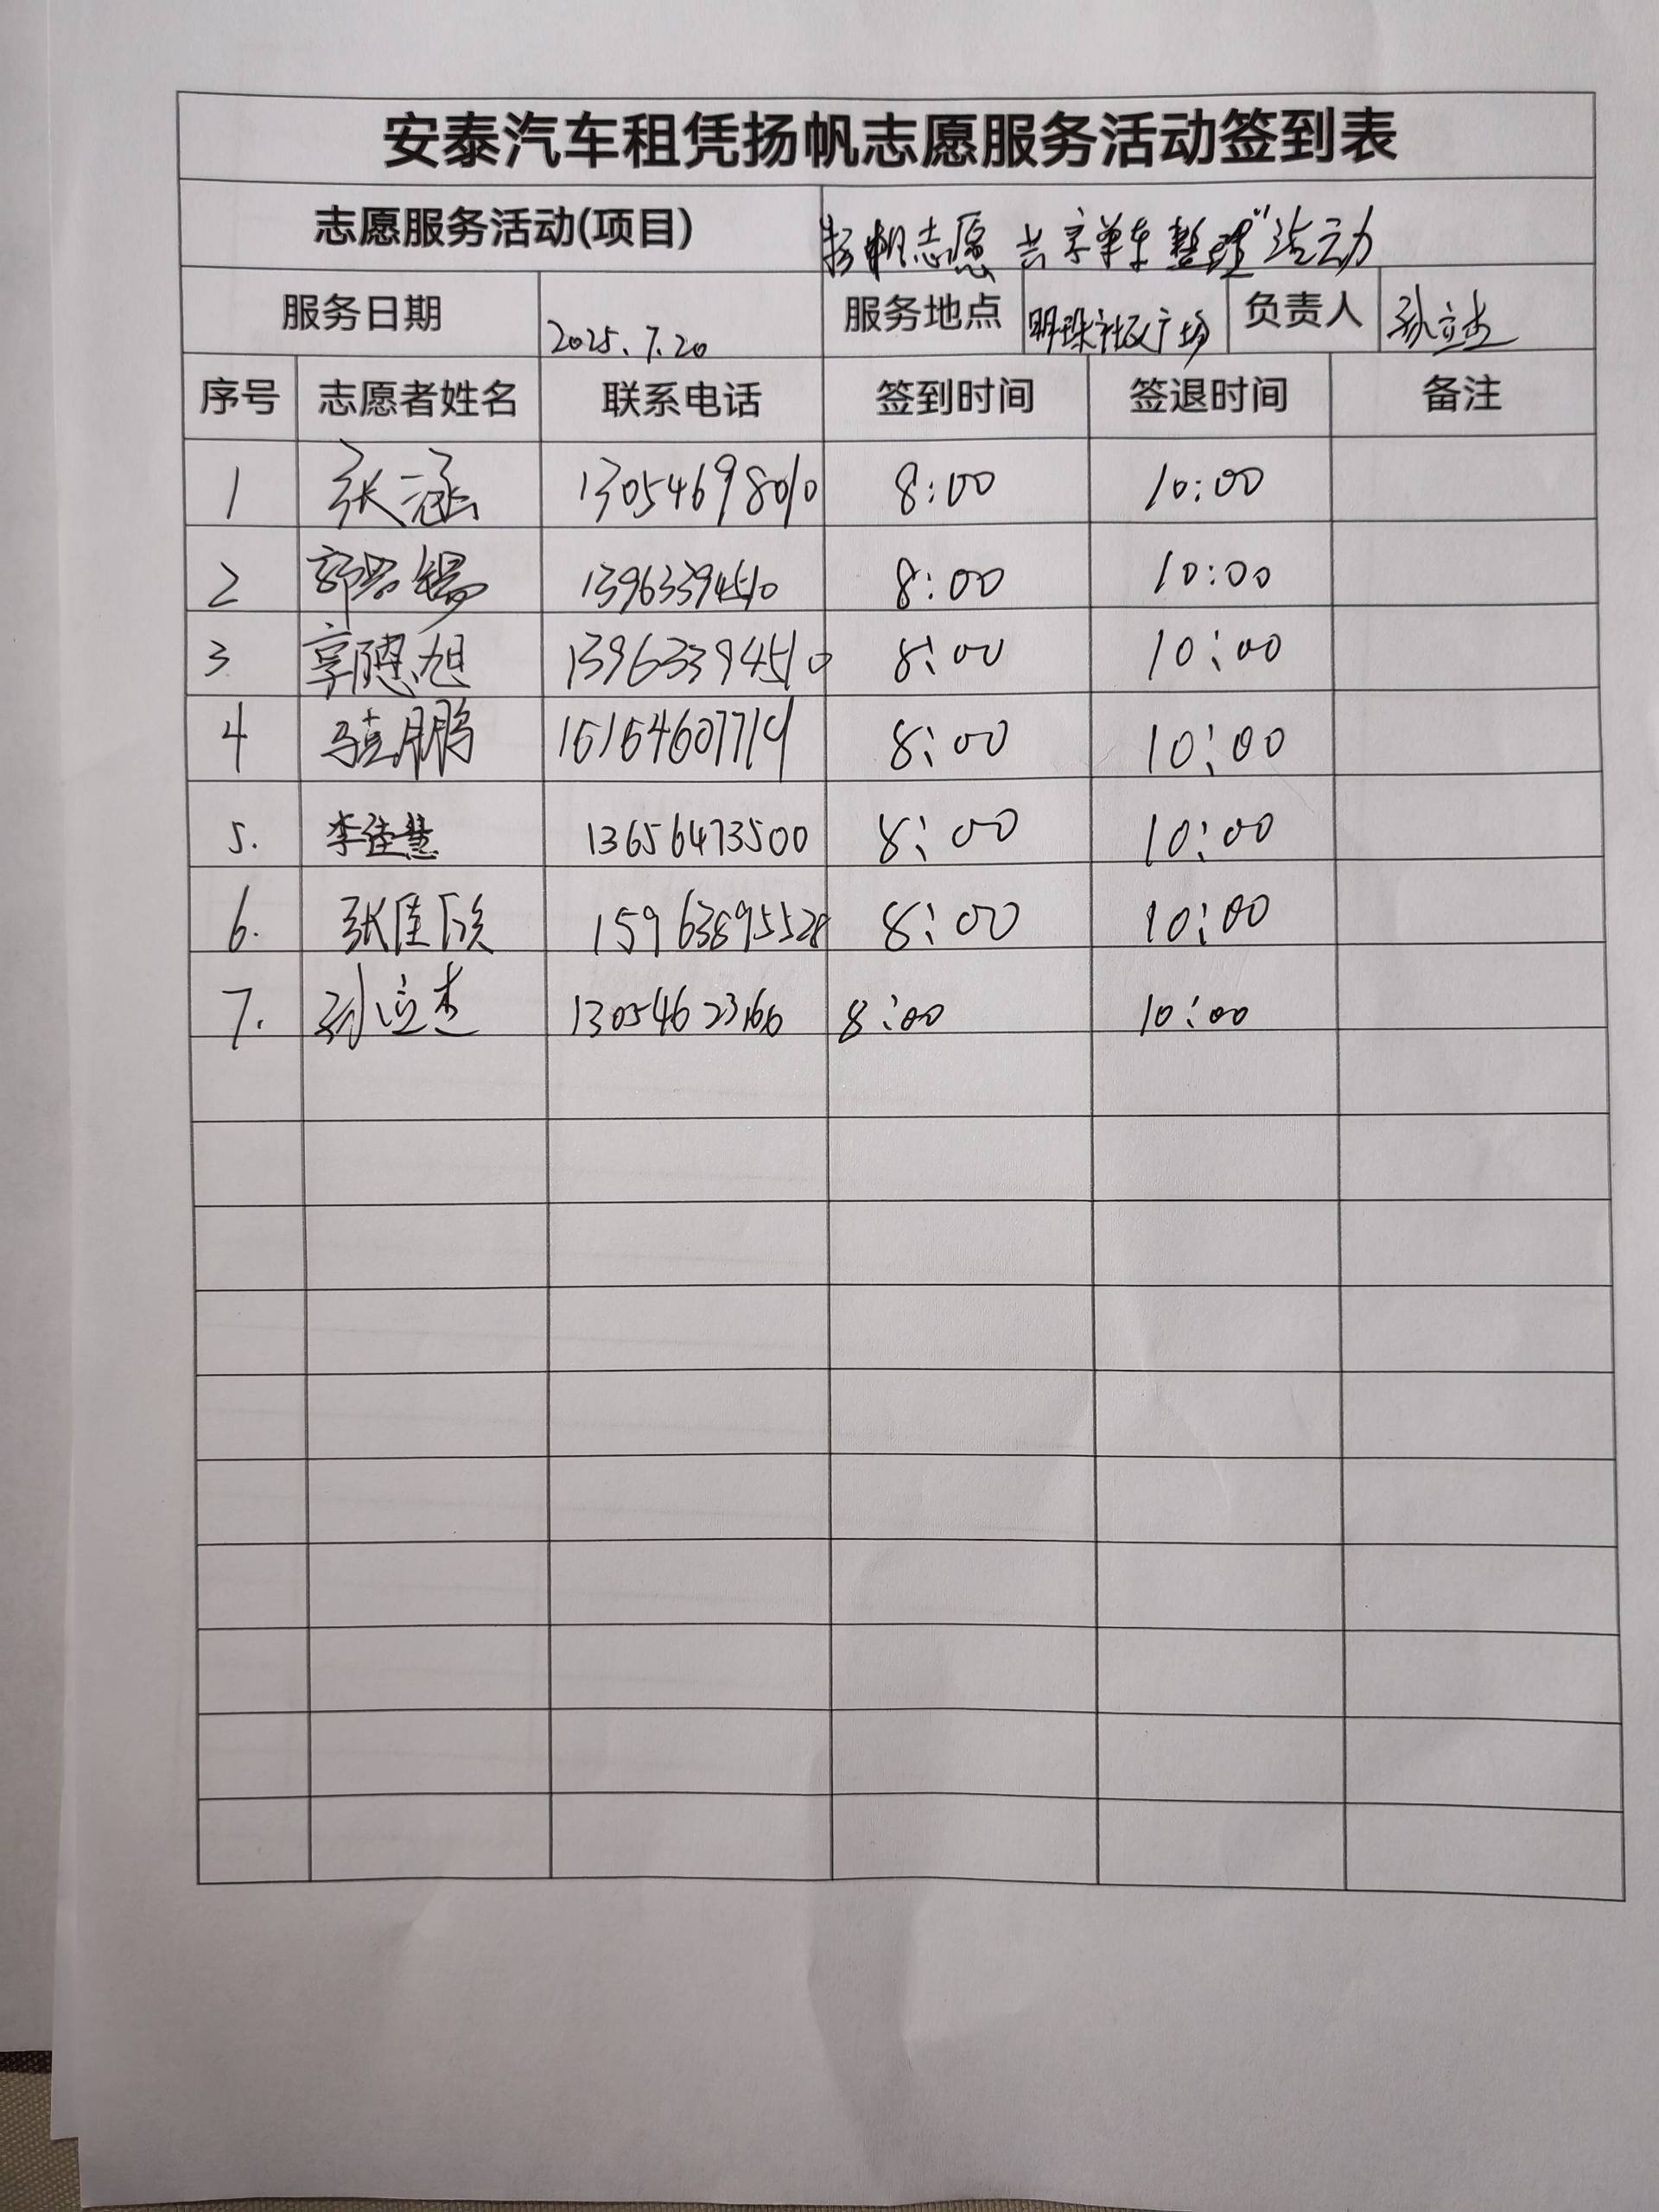 安泰汽车租凭扬帆志愿服务活动签到表
志愿服务活动(项目) 扬帆志愿 共享单车整理"活动
服务日期 2025.7.20 服务地点 明珠社区广场 负责人 孙立杰
序号 志愿者姓名 联系电话 签到时间 签退时间 备注
1 张涵 13054698010 8:00 10:00
2 13963394510 8:00 10:00
3 旭 13963394510 8:00 10:00
4 鹏 8:00 10:00
5. 李佳慧 13656473500 8:00 10:00
6. 张佳欣 15963895528 8:00 10:00
7. 孙立杰 13054623166 8:00 10:00